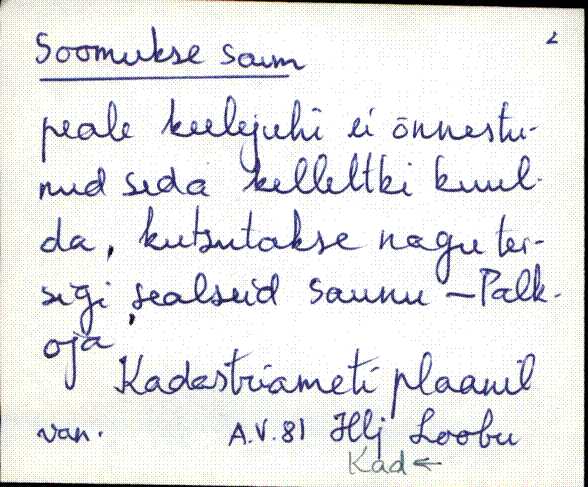 Soomukse saun 2
peale keelejuhi ei õnnestu-
nud seda kelleltki kuul-
da, kutsutakse nagu tei-
sigi sealseid saunu – Palk-
oja
Kadastriameti plaanil
van. A.V. 81 Hlj Loobu
Kad ←